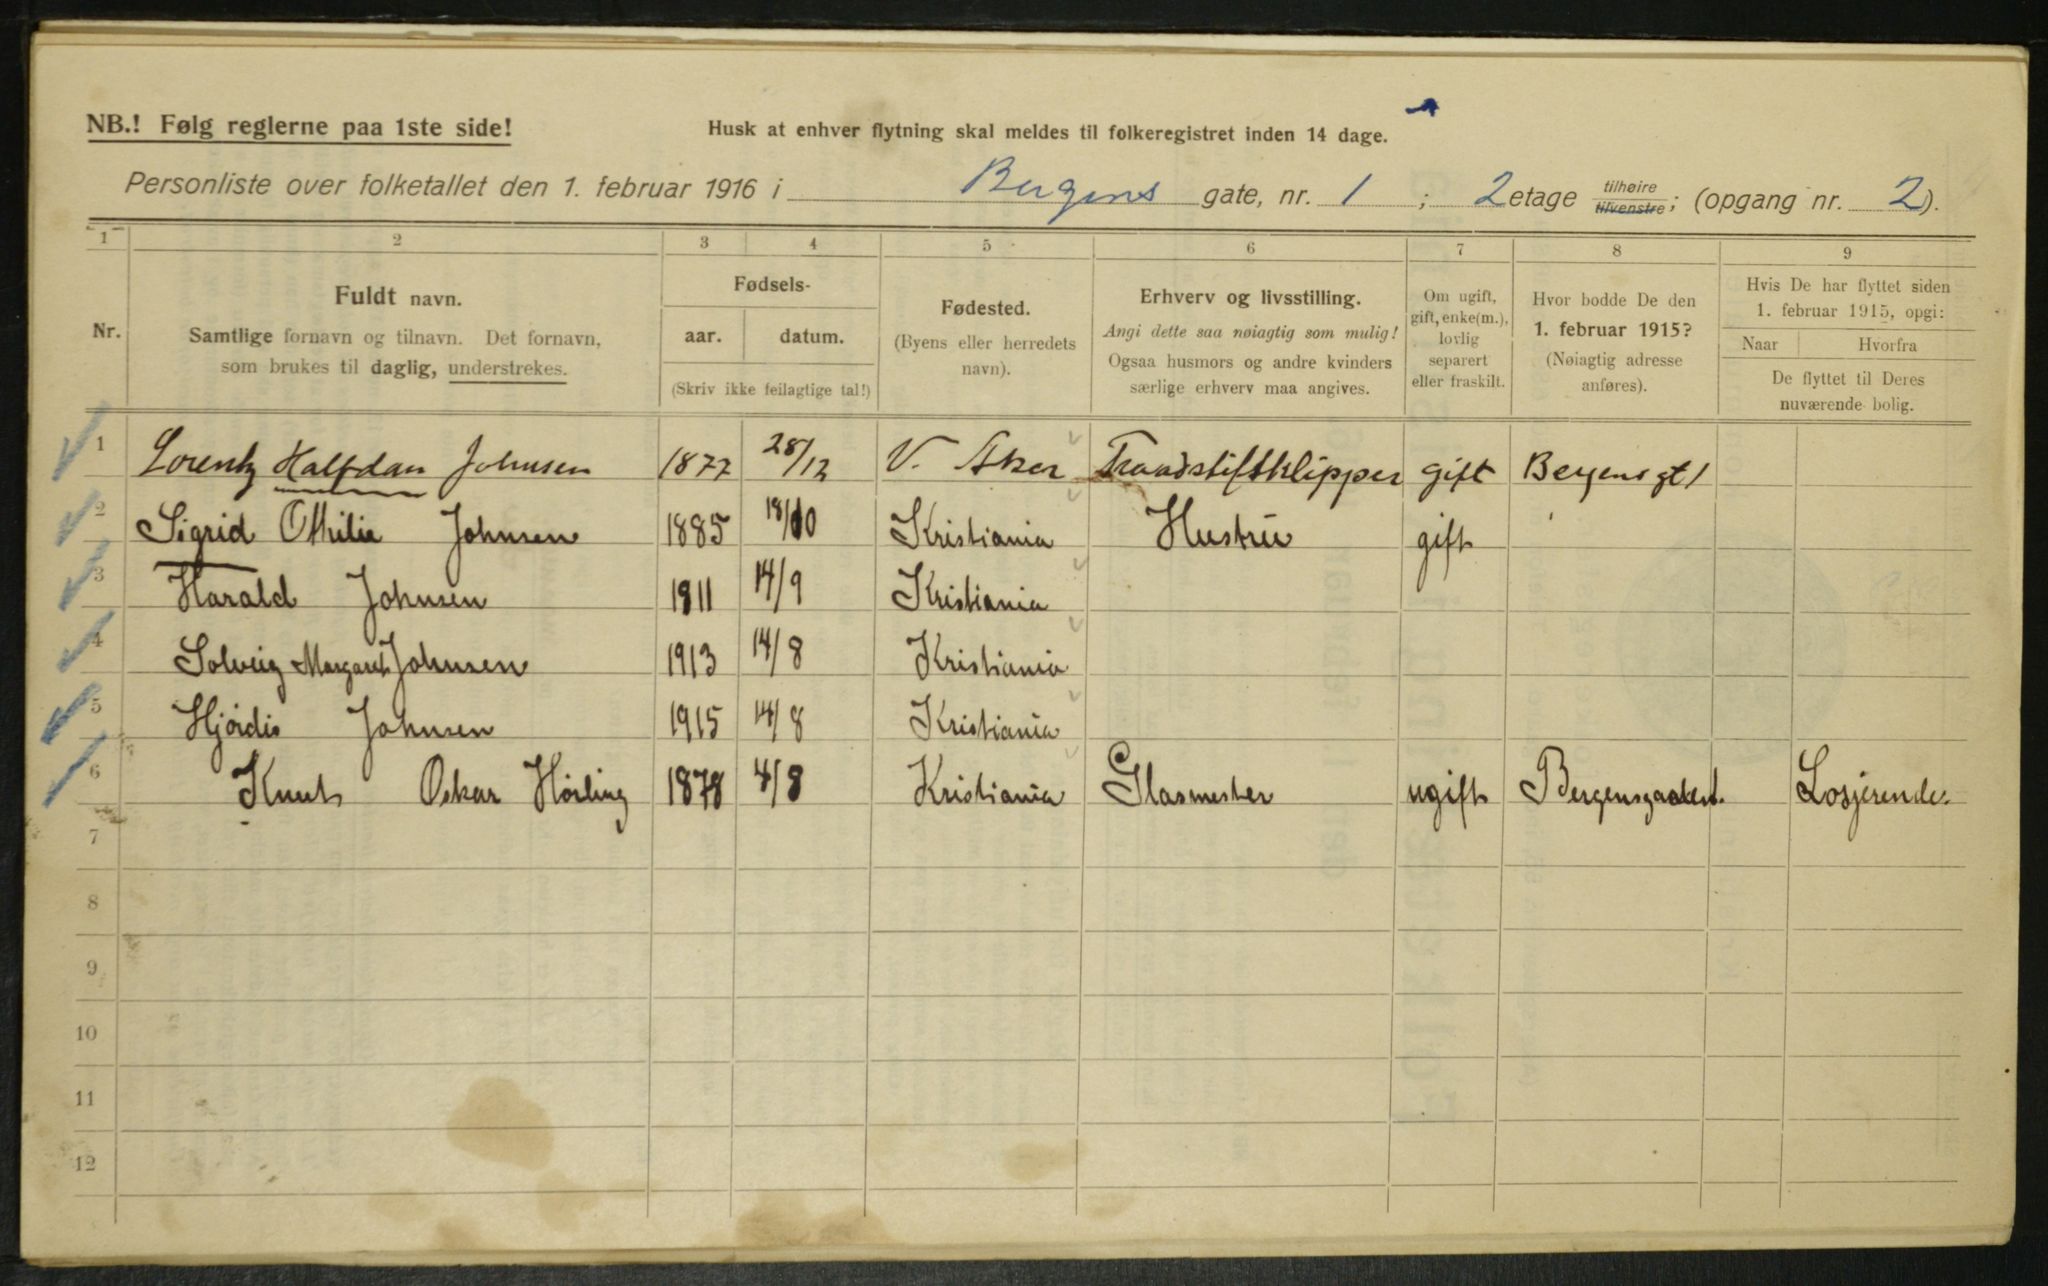 NB.! Følg reglerne paa 1ste side!
Husk at enhver flytning skal meldes til folkeregistret inden 14 dage.
Personliste over folketallet den 1. februar 1916 i Bergens gate, nr. 1 ; 2 etage tilhøire tilvenstre; (opgang nr. 2).
1 2 3 4 5 6 7 8 9
Nr.
Fuldt navn.
Samtlige fornavn og tilnavn. Det fornavn,
som brukes til daglig, understrekes.
Fødsels-
aar. datum.
(Skriv ikke feilagtige tal!)
Fødested.
(Byens eller herredets
navn).
Erhverv og livsstilling.
Angi dette saa nøiagtig som mulig!
Ogsaa husmors og andre kvinders
særlige erhverv maa angives.
Om ugift,
gift, enke(m.),
lovlig
separert
eller fraskilt.
Hvor bodde De den
1. februar 1915?
(Nøiagtig adresse
anføres).
Hvis De har flyttet siden
1. februar 1915, opgi:
Naar Hvorfra
De flyttet til Deres
nuværende bolig.
1 Lorentz Halfdan Johnsen 1877 28/12 V. Aker Traadstiftklipper gift Bergensgt 1
2 Sigrid Othilie Johnsen 1885 18/10 Kristiania Hustru gift
3 Harald Johnsen 1911 14/9 Kristiania
4 Solveig Margaret Johnsen 1913 14/8 Kristiania
5 Hjördis Johnsen 1915 14/8 Kristiania
6 Knut Oskar Hörling 1878 4/8 Kristiania Glasmester ugift Losjerende.
7
8
9
10
11
12